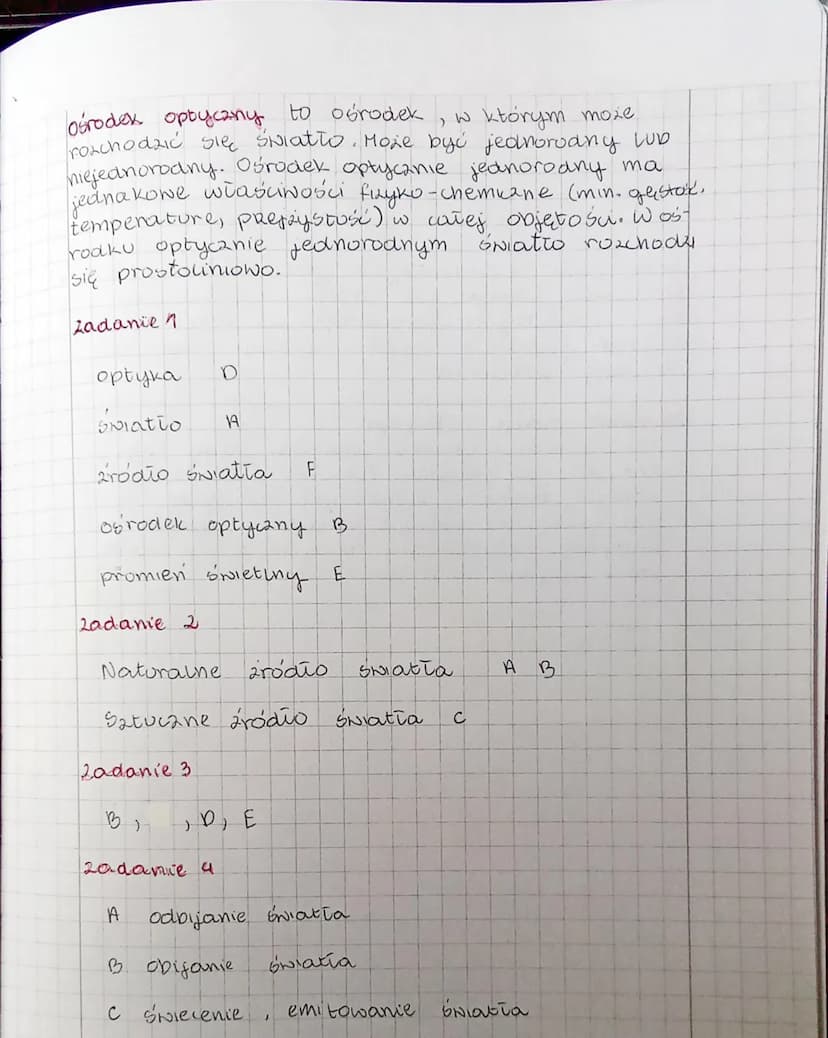 Ośrodek optyczny to ośrodek, w którym może
rozchodzić się światło. Może być jednorodny lub
niejednorodny. Ośrodek optycznie jednorodny ma
jednakowe właściwości fizyko-chemiczne (min. gęstość,
temperaturę, przejżystość) w całej objętości. W oś-
rodku optycznie jednorodnym światło rozchodzi
się prostoliniowo.
Zadanie 1
optyka D
światło A
źródło światła F
ośrodek optyczny B
promień świetlny E
Zadanie 2
Naturalne źródło światła A B
Sztuczne źródło światła C
Zadanie 3
B, , D, E
Zadanie 4
A odbijanie światła
B obijanie światła
C świecenie, emitowanie światła